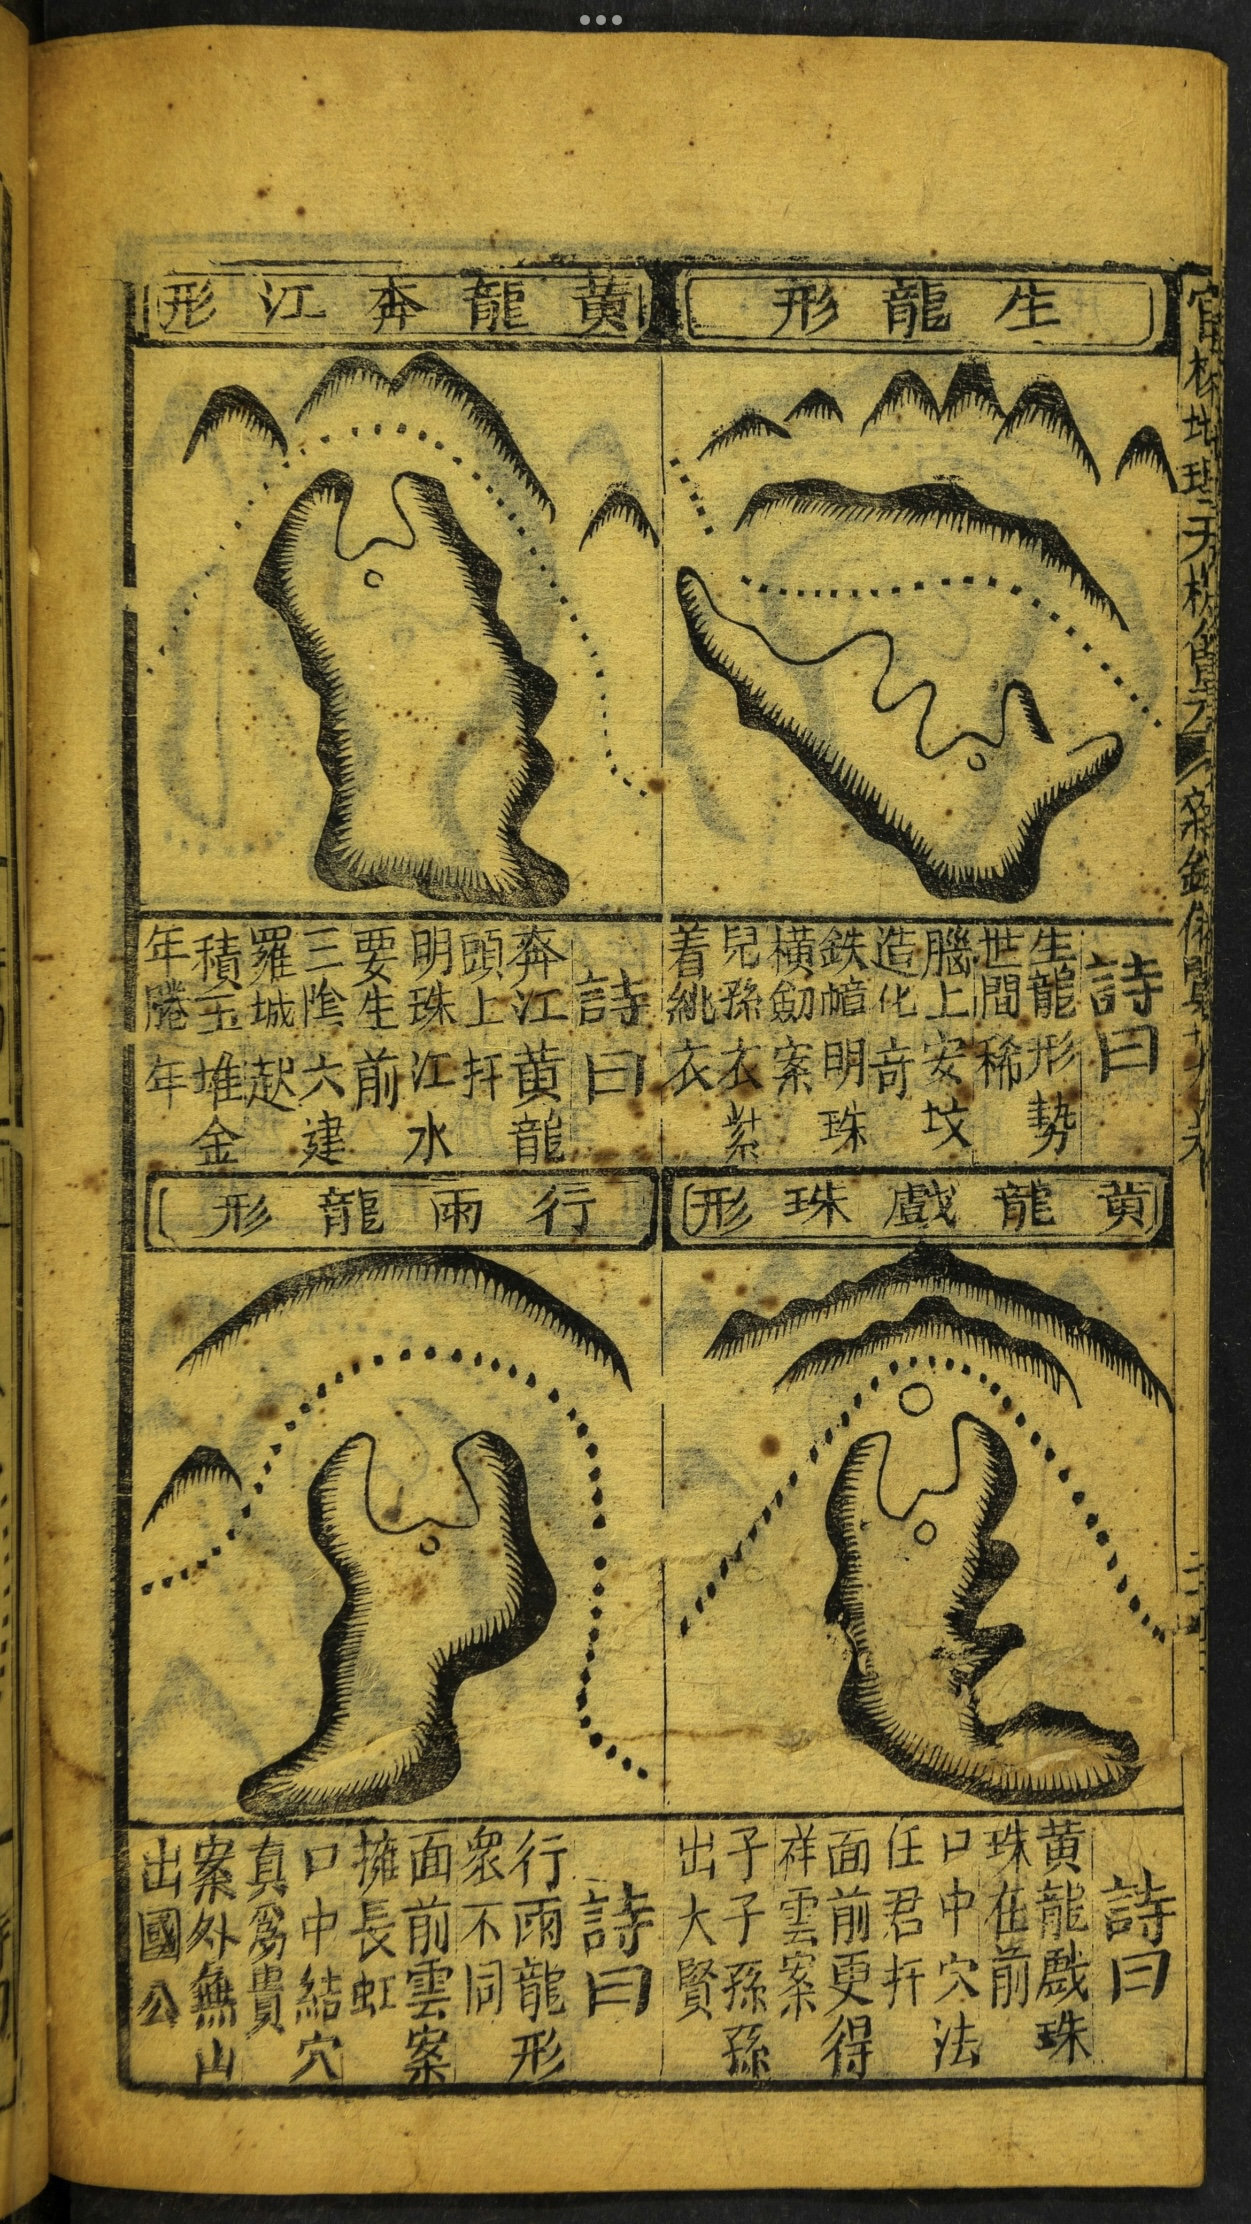 生龍形
詩曰
生龍形勢
世間稀
腦上安坟
造化竒
鉄幨明珠
橫劒案
兒孫衣紫
着緋衣
黄龍奔江形
詩曰
奔江黄龍
頭上扦
明珠江水
要生前
三隂六建
羅城起
積玉堆金
年勝年
黄龍戲珠形
詩曰
黄龍戲珠
珠在前
口中穴法
任君扦
面前更得
祥雲案
子子孫孫
出大賢
行雨龍形
詩曰
行雨龍形
衆不同
面前雲案
擁長虹
口中結穴
真爲貴
案外無山
出國公